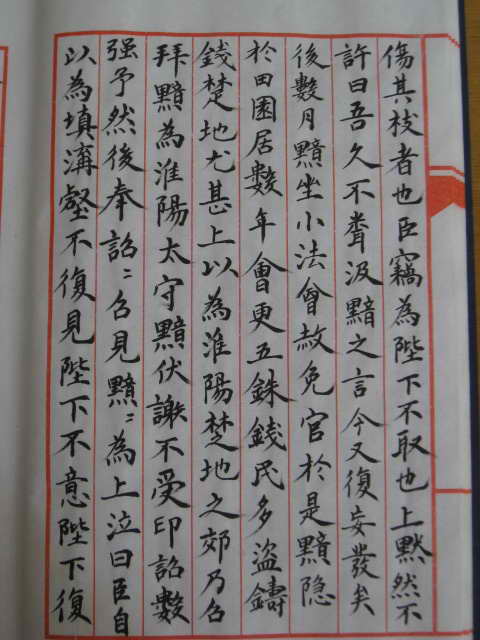 傷其枝者也臣竊為陛下不取也上默然不
許曰吾久不聞汲黯之言今又復妄發矣
後數月黯坐小法會赦免官於是黯隐
於田園居數年會更五銖錢民多盜鑄
錢楚地尤甚上以為淮陽楚地之郊乃召
拜黯為淮陽太守黯伏謝不受印詔數
强予然後奉詔〻召見黯〻為上泣曰臣自
以為填溝壑不復見陛下不意陛下復